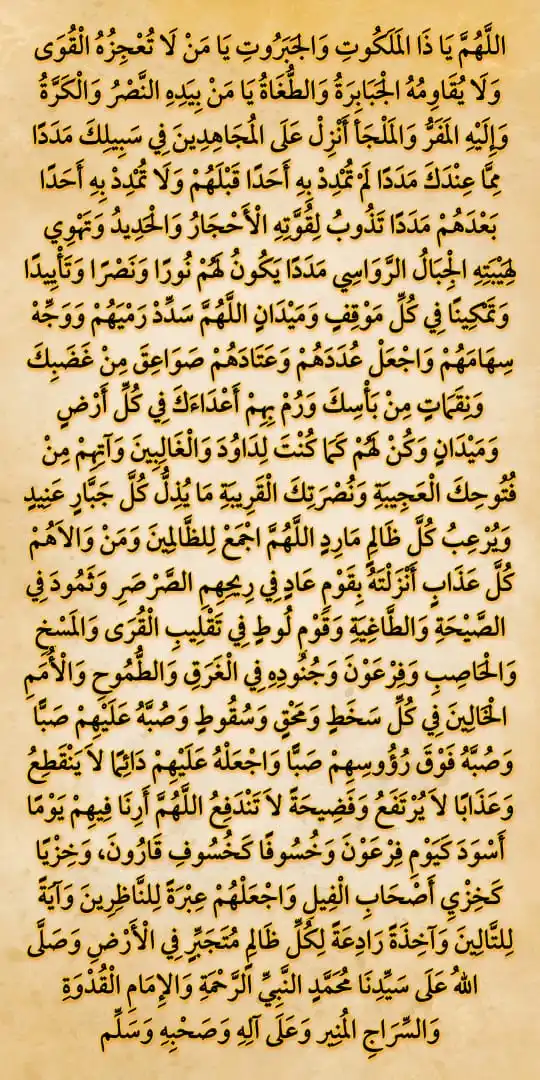 اللَّهُمَّ يَا ذَا المَلَكُوتِ وَالجَبَرُوتِ يَا مَنْ لَا تُعْجِزُهُ الْقُوَى
وَلَا يُقَاوِمُهُ الْجَبَابِرَةُ وَالطُّغَاةُ يَا مَنْ بِيَدِهِ النَّصْرُ وَالْكَرَّةُ
وَإِلَيْهِ المَفَرُّ وَالمَلْجَأُ أَنْزِلْ عَلَى المُجَاهِدِينَ فِي سَبِيلِكَ مَدَدًا
مِمَّا عِنْدَكَ مَدَدًا لَمْ تُمْدِدْ بِهِ أَحَدًا قَبْلَهُمْ وَلَا تُمْدِدْ بِهِ أَحَدًا
بَعْدَهُمْ مَدَدًا تَذُوبُ لِقُوَّتِهِ الْأَحْجَارُ وَالْحَدِيدُ وَتَهْوِي
لِهَيْبَتِهِ الْجِبَالُ الرَّوَاسِي مَدَدًا يَكُونُ لَهُمْ نُورًا وَنَصْرًا وَتَأْيِيدًا
وَتَمْكِينًا فِي كُلِّ مَوْقِفٍ وَمَيْدَانٍ اللَّهُمَّ سَدِّدْ رَمْيَهُمْ وَوَجِّهْ
سِهَامَهُمْ وَاجْعَلْ عُدَدَهُمْ وَعَتَادَهُمْ صَوَاعِقَ مِنْ غَضَبِكَ
وَنِقَمَاتٍ مِنْ بَأْسِكَ وَرُمْ بِهِمْ أَعْدَاءَكَ فِي كُلِّ أَرْضٍ
وَمَيْدَانٍ وَكُنْ لَهُمْ كَمَا كُنْتَ لِدَاوُدَ وَالْغَالِبِينَ وَآتِهِمْ مِنْ
فُتُوحِكَ الْعَجِيبَةِ وَنُصْرَتِكَ الْقَرِيبَةِ مَا يُذِلُّ كُلَّ جَبَّارٍ عَنِيدٍ
وَيُرْعِبُ كُلَّ ظَالِمٍ مَارِدٍ اللَّهُمَّ اجْمَعْ لِلظَّالِمِينَ وَمَنْ وَالاَهُمْ
كُلَّ عَذَابٍ أَنْزَلْتَهُ بِقَوْمِ عَادٍ فِي رِيحِهِمِ الصَّرْصَرِ وَثَمُودَ فِي
الصَّيْحَةِ وَالطَّاغِيَةِ وَقَوْمِ لُوطٍ فِي تَقْلِيبِ الْقُرَى وَالمَسْخِ
وَالْحَاصِبِ وَفِرْعَوْنَ وَجُنُودِهِ فِي الْغَرَقِ وَالطُّمُوحِ وَالْأُمَمِ
الْخَالِينَ فِي كُلِّ سَخَطٍ وَمَحْقٍ وَسُقُوطٍ وَصُبَّهُ عَلَيْهِمْ صَبًّا
وَصُبَّهُ فَوْقَ رُؤُوسِهِمْ صَبًّا وَاجْعَلْهُ عَلَيْهِمْ دَائِمًا لاَ يَنْقَطِعُ
وَعَذَابًا لاَ يُرْتَفَعُ وَفَضِيحَةً لاَ تَنْدَفِعُ اللَّهُمَّ أَرِنَا فِيهِمْ يَوْمًا
أَسْوَدَ كَيَوْمِ فِرْعَوْنَ وَخُسُوفًا كَخُسُوفِ قَارُونَ، وَخِزْيًا
كَخِزْيِ أَصْحَابِ الْفِيلِ وَاجْعَلْهُمْ عِبْرَةً لِلنَّاظِرِينَ وَآيَةً
لِلتَّالِينَ وَآخِذَةً رَادِعَةً لِكُلِّ ظَالِمٍ مُتَجَبِّرٍ فِي الْأَرْضِ وَصَلَّى
اللهُ عَلَى سَيِّدِنَا مُحَمَّدٍ النَّبِيِّ الرَّحْمَةِ وَالإِمَامِ الْقُدْوَةِ
وَالسِّرَاجِ المُنِيرِ وَعَلَى آلِهِ وَصَحْبِهِ وَسَلِّم